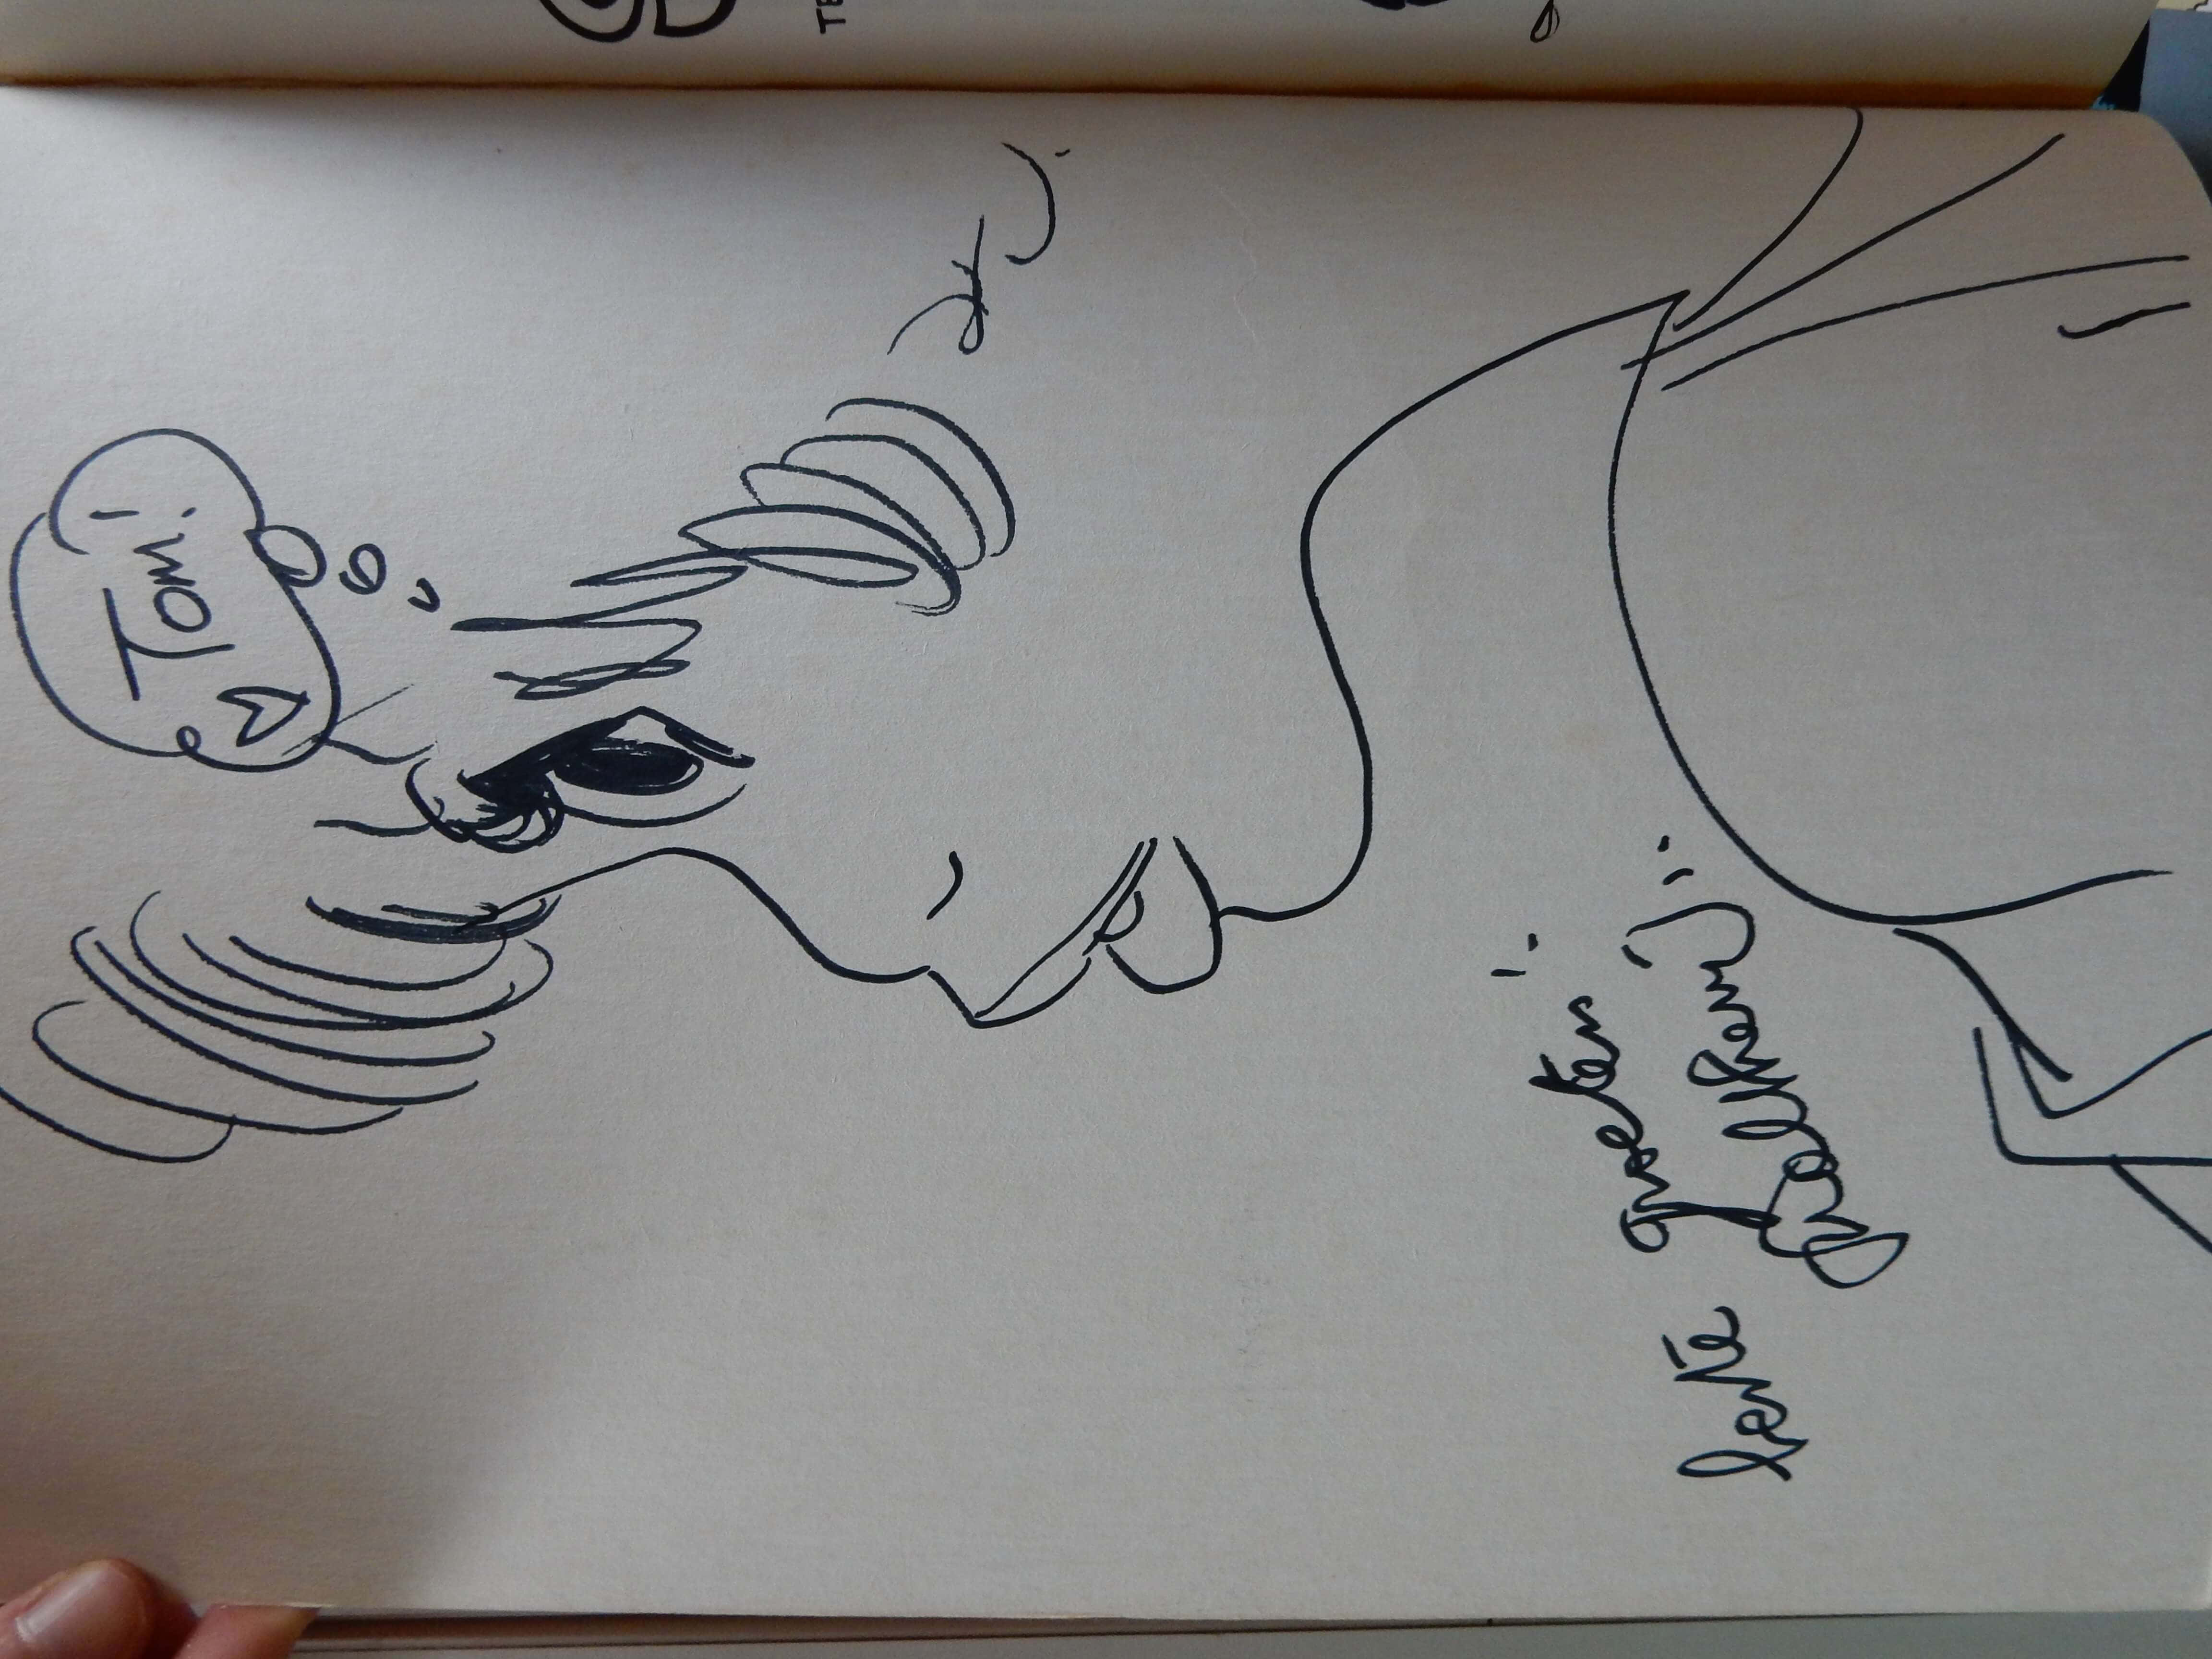 Tom!
beste groeten!
Walthéry
TE